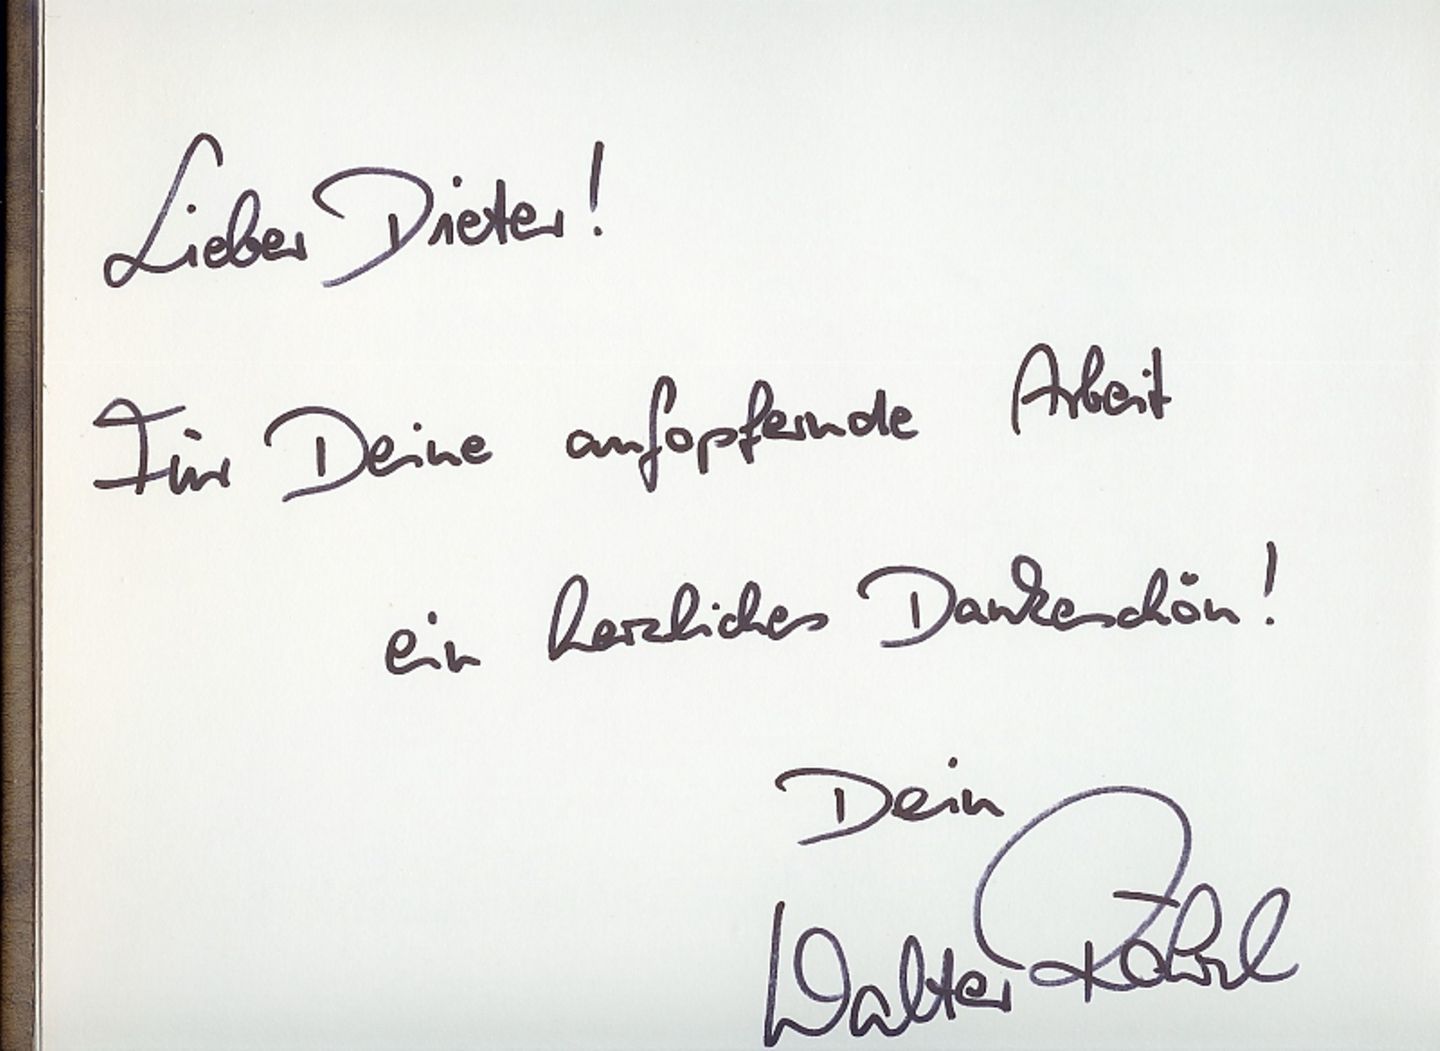 Lieber Dieter!
Für Deine aufopfernde Arbeit
ein herzliches Dankeschön!
Dein
Walter Röhrl